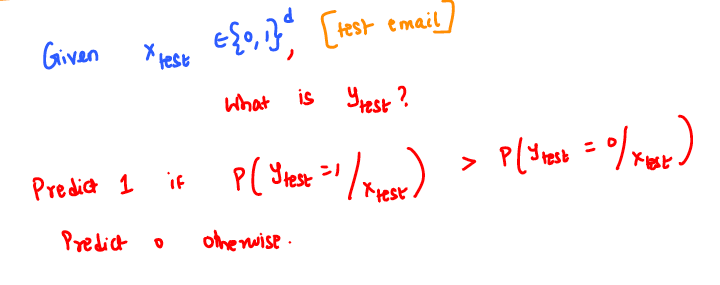 Given x_test ∈ {0,1}^d, [test email]
What is y_test?
Predict 1 if P(y_test = 1/x_test) > P(y_test = 0/x_test)
Predict 0 otherwise.